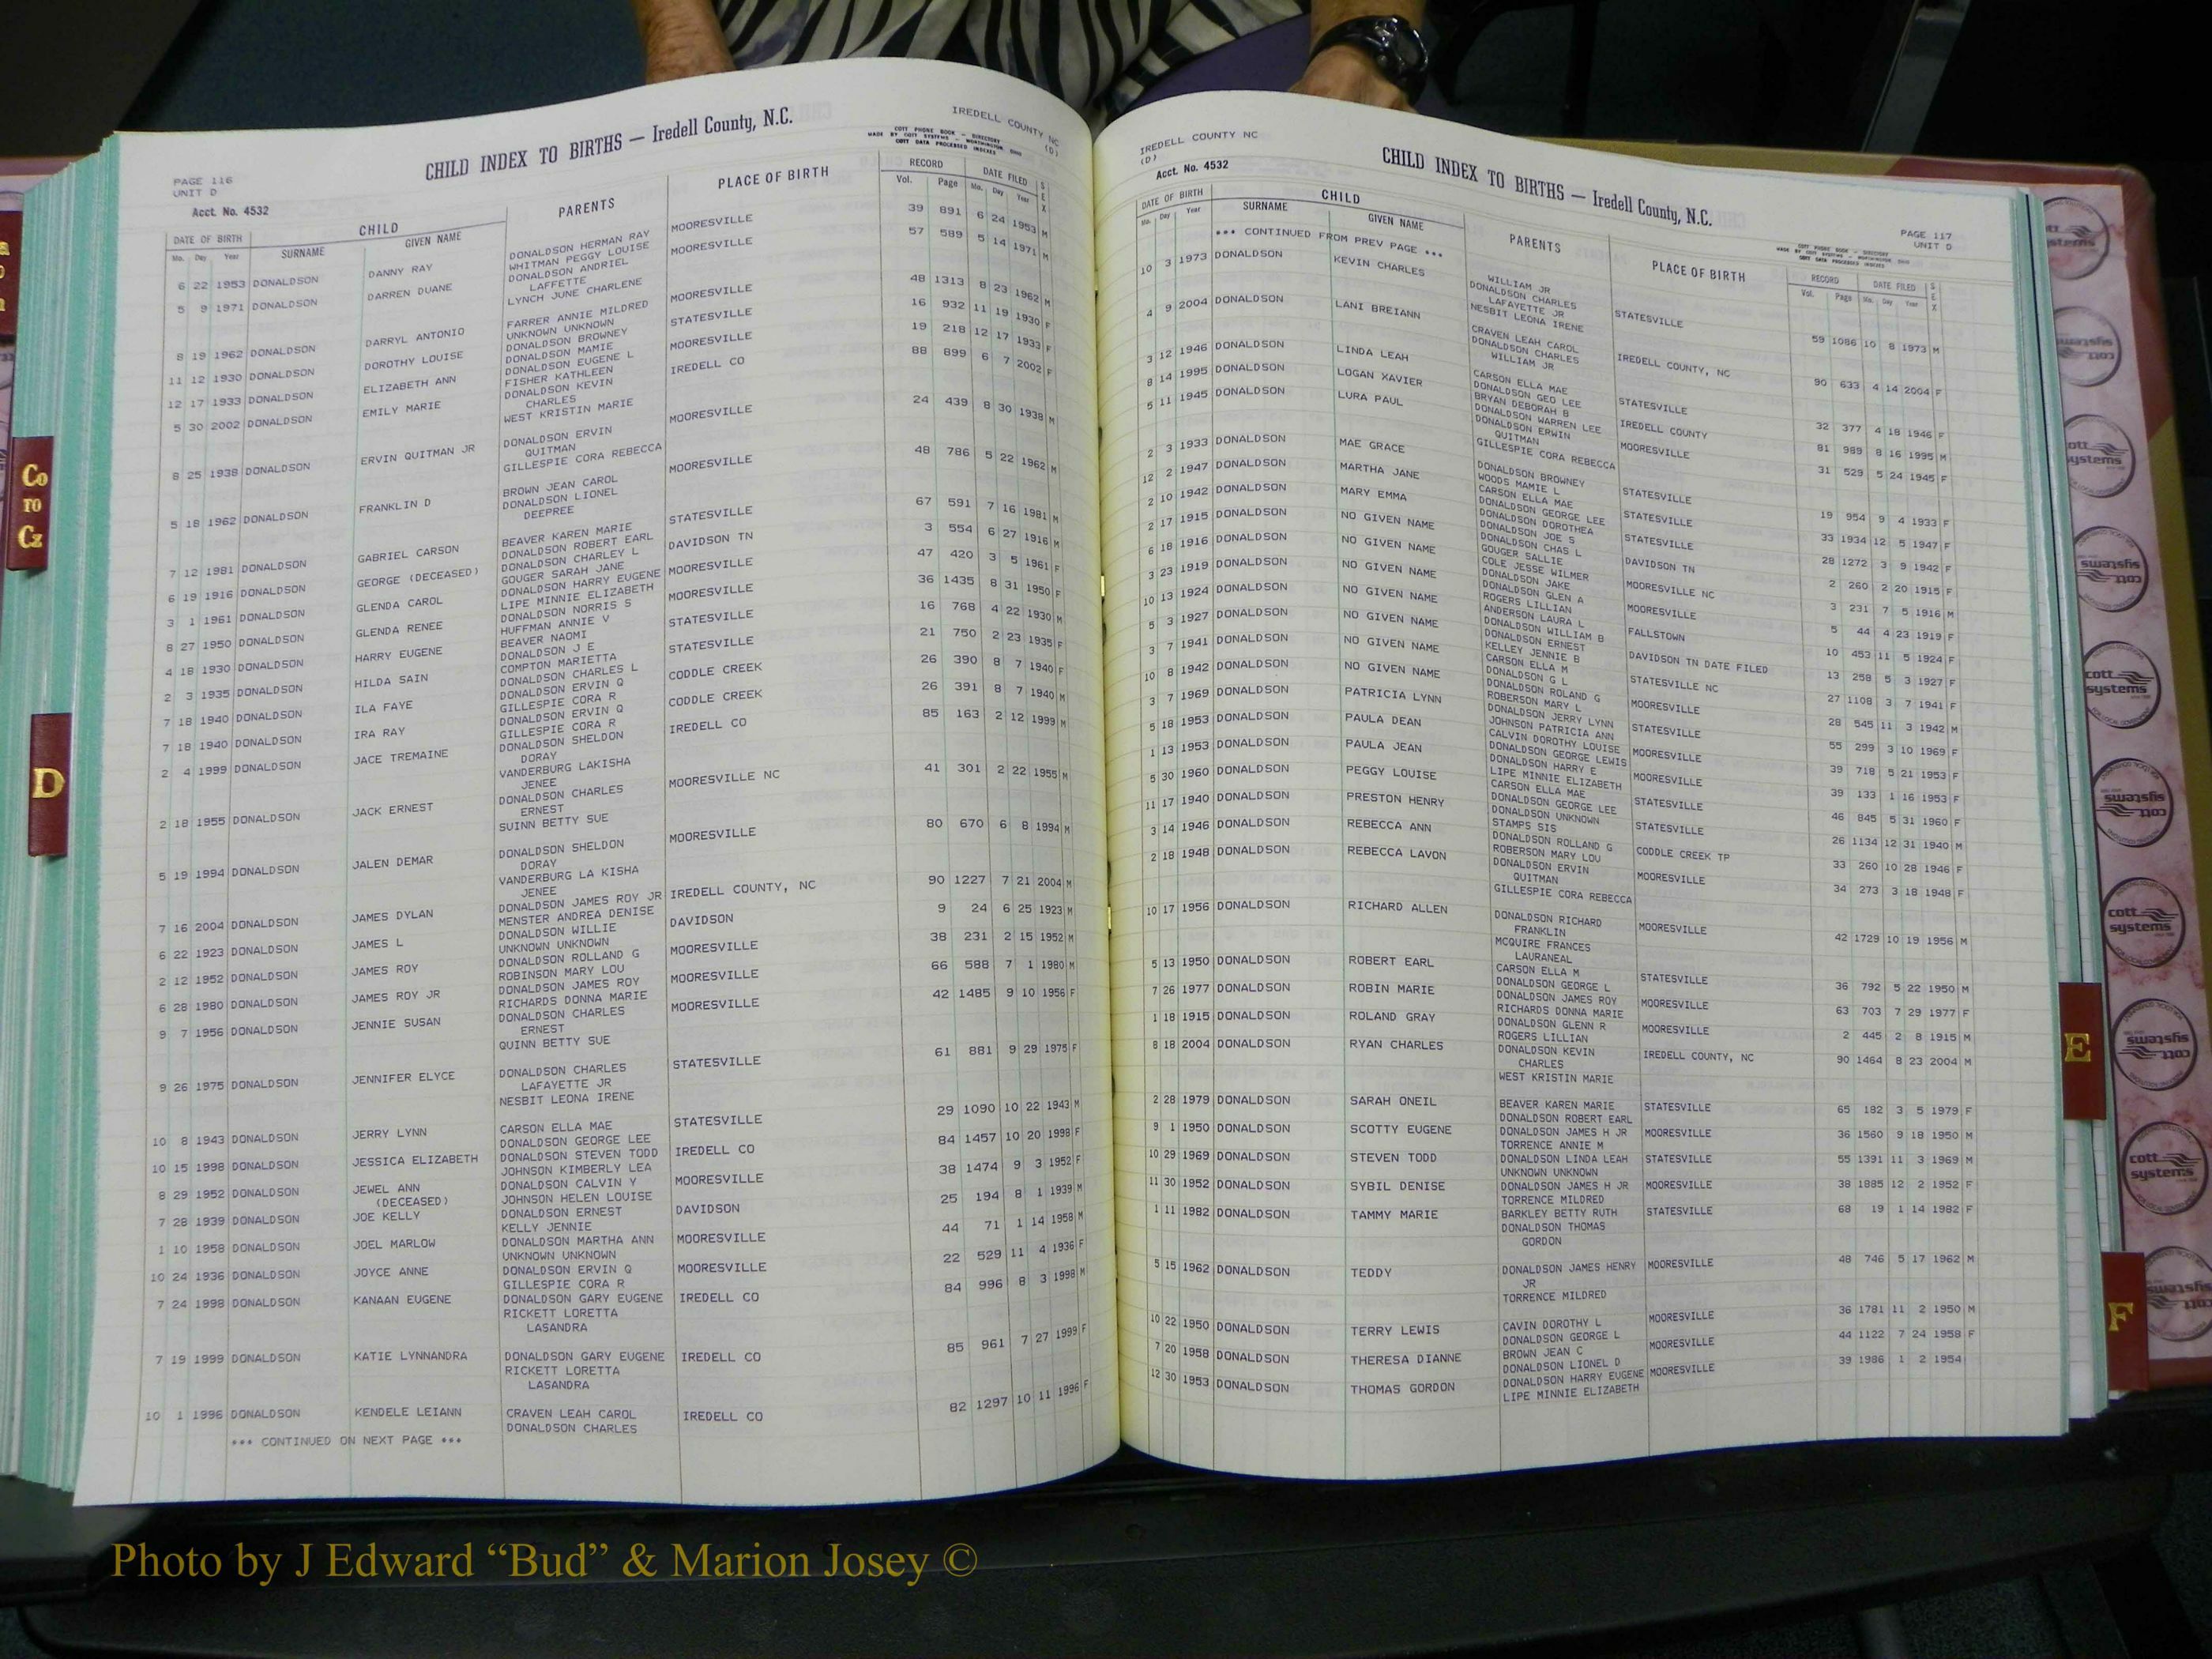 PAGE 116
UNIT D
CHILD INDEX TO BIRTHS — Iredell County, N.C.
IREDELL COUNTY NC
(D)
COTT PHONE BOOK — DIRECTORY
MADE BY COTT SYSTEMS — WORTHINGTON, OHIO
COTT DATA PROCESSED INDEXES
Acct. No. 4532
DATE OF BIRTH CHILD PARENTS PLACE OF BIRTH RECORD DATE FILED SEX
Mo. Day Year SURNAME GIVEN NAME Vol. Page Mo. Day Year
6 22 1953 DONALDSON DANNY RAY DONALDSON HERMAN RAY MOORESVILLE 39 891 6 24 1953 M
WHITMAN PEGGY LOUISE
5 9 1971 DONALDSON DARREN DUANE DONALDSON ANDRIEL MOORESVILLE 57 589 5 14 1971 M
LAFFETTE
LYNCH JUNE CHARLENE
8 19 1962 DONALDSON DARRYL ANTONIO FARRER ANNIE MILDRED MOORESVILLE 48 1313 8 23 1962 M
UNKNOWN UNKNOWN
11 12 1930 DONALDSON DOROTHY LOUISE DONALDSON BROWNEY STATESVILLE 16 932 11 19 1930 F
DONALDSON MAMIE
12 17 1933 DONALDSON ELIZABETH ANN DONALDSON EUGENE L MOORESVILLE 19 218 12 17 1933 F
FISHER KATHLEEN
5 30 2002 DONALDSON EMILY MARIE DONALDSON KEVIN IREDELL CO 88 899 6 7 2002 F
CHARLES
WEST KRISTIN MARIE
8 25 1938 DONALDSON ERVIN QUITMAN JR DONALDSON ERVIN MOORESVILLE 24 439 8 30 1938 M
QUITMAN
GILLESPIE CORA REBECCA
5 18 1962 DONALDSON FRANKLIN D BROWN JEAN CAROL MOORESVILLE 48 786 5 22 1962 M
DONALDSON LIONEL
DEEPREE
7 12 1981 DONALDSON GABRIEL CARSON BEAVER KAREN MARIE STATESVILLE 67 591 7 16 1981 M
DONALDSON ROBERT EARL
6 19 1916 DONALDSON GEORGE (DECEASED) DONALDSON CHARLEY L DAVIDSON TN 3 554 6 27 1916 M
GOUGER SARAH JANE
3 1 1961 DONALDSON GLENDA CAROL DONALDSON HARRY EUGENE MOORESVILLE 47 420 3 5 1961 F
LIPE MINNIE ELIZABETH
8 27 1950 DONALDSON GLENDA RENEE DONALDSON NORRIS S MOORESVILLE 36 1435 8 31 1950 F
HUFFMAN ANNIE V
4 18 1930 DONALDSON HARRY EUGENE BEAVER NAOMI STATESVILLE 16 768 4 22 1930 M
DONALDSON J E
2 3 1935 DONALDSON HILDA SAIN COMPTON MARIETTA STATESVILLE 21 750 2 23 1935 F
DONALDSON CHARLES L
7 18 1940 DONALDSON ILA FAYE DONALDSON ERVIN Q CODDLE CREEK 26 390 8 7 1940 F
GILLESPIE CORA R
7 18 1940 DONALDSON IRA RAY DONALDSON ERVIN Q CODDLE CREEK 26 391 8 7 1940 M
GILLESPIE CORA R
2 4 1999 DONALDSON JACE TREMAINE DONALDSON SHELDON IREDELL CO 85 163 2 12 1999 M
DORAY
VANDERBURG LAKISHA
JENEE
2 18 1955 DONALDSON JACK ERNEST DONALDSON CHARLES MOORESVILLE NC 41 301 2 22 1955 M
ERNEST
SUINN BETTY SUE
5 19 1994 DONALDSON JALEN DEMAR DONALDSON SHELDON MOORESVILLE 80 670 6 8 1994 M
DORAY
VANDERBURG LA KISHA
JENEE
7 16 2004 DONALDSON JAMES DYLAN DONALDSON JAMES ROY JR IREDELL COUNTY, NC 90 1227 7 21 2004 M
MENSTER ANDREA DENISE
6 22 1923 DONALDSON JAMES L DONALDSON WILLIE DAVIDSON 9 24 6 25 1923 M
UNKNOWN UNKNOWN
2 12 1952 DONALDSON JAMES ROY DONALDSON ROLLAND G MOORESVILLE 38 231 2 15 1952 M
ROBINSON MARY LOU
6 28 1980 DONALDSON JAMES ROY JR DONALDSON JAMES ROY MOORESVILLE 66 588 7 1 1980 M
RICHARDS DONNA MARIE
9 7 1956 DONALDSON JENNIE SUSAN DONALDSON CHARLES MOORESVILLE 42 1485 9 10 1956 F
ERNEST
QUINN BETTY SUE
9 26 1975 DONALDSON JENNIFER ELYCE DONALDSON CHARLES STATESVILLE 61 881 9 29 1975 F
LAFAYETTE JR
NESBIT LEONA IRENE
10 8 1943 DONALDSON JERRY LYNN CARSON ELLA MAE STATESVILLE 29 1090 10 22 1943 M
DONALDSON GEORGE LEE
10 15 1998 DONALDSON JESSICA ELIZABETH DONALDSON STEVEN TODD IREDELL CO 84 1457 10 20 1998 F
JOHNSON KIMBERLY LEA
8 29 1952 DONALDSON JEWEL ANN DONALDSON CALVIN Y MOORESVILLE 38 1474 9 3 1952 F
(DECEASED) JOHNSON HELEN LOUISE
7 28 1939 DONALDSON JOE KELLY DONALDSON ERNEST DAVIDSON 25 194 8 1 1939 M
KELLY JENNIE
1 10 1958 DONALDSON JOEL MARLOW DONALDSON MARTHA ANN MOORESVILLE 44 71 1 14 1958 M
UNKNOWN UNKNOWN
10 24 1936 DONALDSON JOYCE ANNE DONALDSON ERVIN Q MOORESVILLE 22 529 11 4 1936 F
GILLESPIE CORA R
7 24 1998 DONALDSON KANAAN EUGENE DONALDSON GARY EUGENE IREDELL CO 84 996 8 3 1998 M
RICKETT LORETTA
LASANDRA
7 19 1999 DONALDSON KATIE LYNNANDRA DONALDSON GARY EUGENE IREDELL CO 85 961 7 27 1999 F
RICKETT LORETTA
LASANDRA
10 1 1996 DONALDSON KENDELE LEIANN CRAVEN LEAH CAROL IREDELL CO 82 1297 10 11 1996 F
DONALDSON CHARLES
*** CONTINUED ON NEXT PAGE ***
IREDELL COUNTY NC
(D)
Acct. No. 4532
CHILD INDEX TO BIRTHS — Iredell County, N.C.
PAGE 117
UNIT D
COTT PHONE BOOK — DIRECTORY
MADE BY COTT SYSTEMS — WORTHINGTON, OHIO
COTT DATA PROCESSED INDEXES
DATE OF BIRTH CHILD PARENTS PLACE OF BIRTH RECORD DATE FILED SEX
Mo. Day Year SURNAME GIVEN NAME Vol. Page Mo. Day Year
*** CONTINUED FROM PREV PAGE ***
WILLIAM JR
10 3 1973 DONALDSON KEVIN CHARLES DONALDSON CHARLES STATESVILLE 59 1086 10 8 1973 M
LAFAYETTE JR
NESBIT LEONA IRENE
4 9 2004 DONALDSON LANI BREIANN CRAVEN LEAH CAROL IREDELL COUNTY, NC 90 633 4 14 2004 F
DONALDSON CHARLES
WILLIAM JR
3 12 1946 DONALDSON LINDA LEAH CARSON ELLA MAE STATESVILLE 32 377 4 18 1946 F
DONALDSON GEO LEE
8 14 1995 DONALDSON LOGAN XAVIER BRYAN DEBORAH B IREDELL COUNTY 81 989 8 16 1995 M
DONALDSON WARREN LEE
5 11 1945 DONALDSON LURA PAUL DONALDSON ERWIN MOORESVILLE 31 529 5 24 1945 F
QUITMAN
GILLESPIE CORA REBECCA
2 3 1933 DONALDSON MAE GRACE DONALDSON BROWNEY STATESVILLE 19 954 9 4 1933 F
WOODS MAMIE L
12 2 1947 DONALDSON MARTHA JANE CARSON ELLA MAE STATESVILLE 33 1934 12 5 1947 F
DONALDSON GEORGE LEE
2 10 1942 DONALDSON MARY EMMA DONALDSON DOROTHEA STATESVILLE 28 1272 3 9 1942 F
DONALDSON JOE S
2 17 1915 DONALDSON NO GIVEN NAME DONALDSON CHAS L DAVIDSON TN 2 260 2 20 1915 F
GOUGER SALLIE
6 18 1916 DONALDSON NO GIVEN NAME COLE JESSE WILMER MOORESVILLE NC 3 231 7 5 1916 M
DONALDSON JAKE
3 23 1919 DONALDSON NO GIVEN NAME DONALDSON GLEN A MOORESVILLE 5 44 4 23 1919 F
ROGERS LILLIAN
10 13 1924 DONALDSON NO GIVEN NAME ANDERSON LAURA L FALLSTOWN 10 453 11 5 1924 F
DONALDSON WILLIAM B
5 3 1927 DONALDSON NO GIVEN NAME DONALDSON ERNEST DAVIDSON TN DATE FILED 13 258 5 3 1927 F
KELLEY JENNIE B
3 7 1941 DONALDSON NO GIVEN NAME CARSON ELLA M STATESVILLE NC 27 1108 3 7 1941 F
DONALDSON G L
10 8 1942 DONALDSON NO GIVEN NAME DONALDSON ROLAND G MOORESVILLE 28 545 11 3 1942 M
ROBERSON MARY L
3 7 1969 DONALDSON PATRICIA LYNN DONALDSON JERRY LYNN STATESVILLE 55 299 3 10 1969 F
JOHNSON PATRICIA ANN
5 18 1953 DONALDSON PAULA DEAN CALVIN DOROTHY LOUISE MOORESVILLE 39 718 5 21 1953 F
DONALDSON GEORGE LEWIS
1 13 1953 DONALDSON PAULA JEAN DONALDSON HARRY E MOORESVILLE 39 133 1 16 1953 F
LIPE MINNIE ELIZABETH
5 30 1960 DONALDSON PEGGY LOUISE CARSON ELLA MAE STATESVILLE 46 845 5 31 1960 F
DONALDSON GEORGE LEE
11 17 1940 DONALDSON PRESTON HENRY DONALDSON UNKNOWN STATESVILLE 26 1134 12 31 1940 M
STAMPS SIS
3 14 1946 DONALDSON REBECCA ANN DONALDSON ROLLAND G CODDLE CREEK TP 33 260 10 28 1946 F
ROBERSON MARY LOU
2 18 1948 DONALDSON REBECCA LAVON DONALDSON ERVIN MOORESVILLE 34 273 3 18 1948 F
QUITMAN
GILLESPIE CORA REBECCA
10 17 1956 DONALDSON RICHARD ALLEN DONALDSON RICHARD MOORESVILLE 42 1729 10 19 1956 M
FRANKLIN
MCQUIRE FRANCES
LAURANEAL
5 13 1950 DONALDSON ROBERT EARL CARSON ELLA M STATESVILLE 36 792 5 22 1950 M
DONALDSON GEORGE L
7 26 1977 DONALDSON ROBIN MARIE DONALDSON JAMES ROY MOORESVILLE 63 703 7 29 1977 F
RICHARDS DONNA MARIE
1 18 1915 DONALDSON ROLAND GRAY DONALDSON GLENN R MOORESVILLE 2 445 2 8 1915 M
ROGERS LILLIAN
8 18 2004 DONALDSON RYAN CHARLES DONALDSON KEVIN IREDELL COUNTY, NC 90 1464 8 23 2004 M
CHARLES
WEST KRISTIN MARIE
2 28 1979 DONALDSON SARAH ONEIL BEAVER KAREN MARIE STATESVILLE 65 182 3 5 1979 F
DONALDSON ROBERT EARL
9 1 1950 DONALDSON SCOTTY EUGENE DONALDSON JAMES H JR MOORESVILLE 36 1560 9 18 1950 M
TORRENCE ANNIE M
10 29 1969 DONALDSON STEVEN TODD DONALDSON LINDA LEAH STATESVILLE 55 1391 11 3 1969 M
UNKNOWN UNKNOWN
11 30 1952 DONALDSON SYBIL DENISE DONALDSON JAMES H JR MOORESVILLE 38 1885 12 2 1952 F
TORRENCE MILDRED
1 11 1982 DONALDSON TAMMY MARIE BARKLEY BETTY RUTH STATESVILLE 68 19 1 14 1982 F
DONALDSON THOMAS
GORDON
5 15 1962 DONALDSON TEDDY DONALDSON JAMES HENRY MOORESVILLE 48 746 5 17 1962 M
JR
TORRENCE MILDRED
10 22 1950 DONALDSON TERRY LEWIS CAVIN DOROTHY L MOORESVILLE 36 1781 11 2 1950 M
DONALDSON GEORGE L
7 20 1958 DONALDSON THERESA DIANNE BROWN JEAN C MOORESVILLE 44 1122 7 24 1958 F
DONALDSON LIONEL D
12 30 1953 DONALDSON THOMAS GORDON DONALDSON HARRY EUGENE MOORESVILLE 39 1986 1 2 1954
LIPE MINNIE ELIZABETH
Co
TO
Cz
D
E
F
cott
systems
Photo by J Edward “Bud” & Marion Josey ©